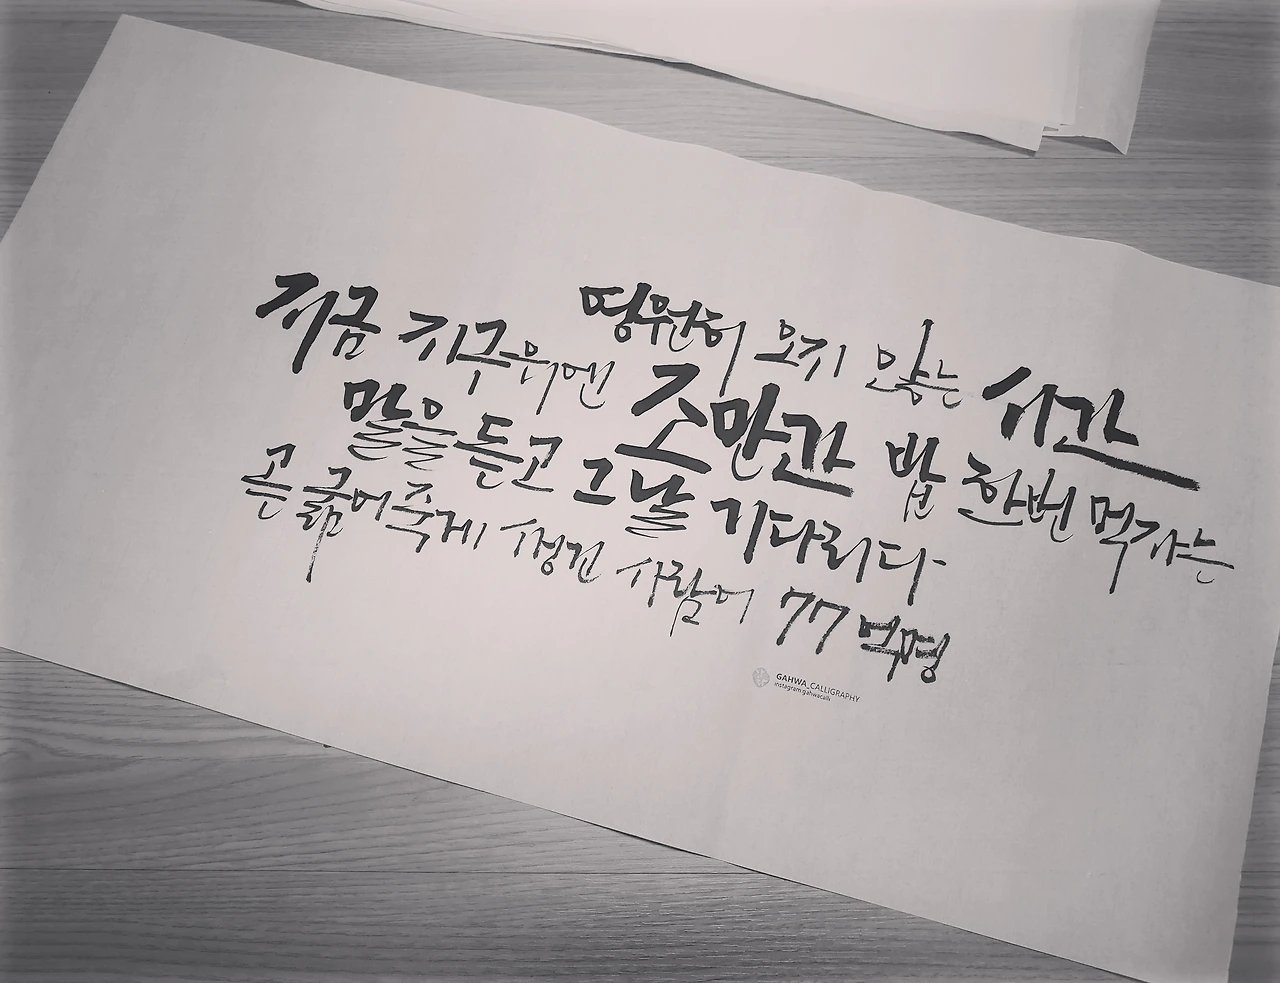 영원히 오지 않는 시간
지금 지구위엔 조만간 밥 한번 먹자는
말을 듣고 그날 기다리다
곧 굶어죽게 생긴 사람이 77억명
GAHWA_CALLIGRAPHY
instagram gahwacalli